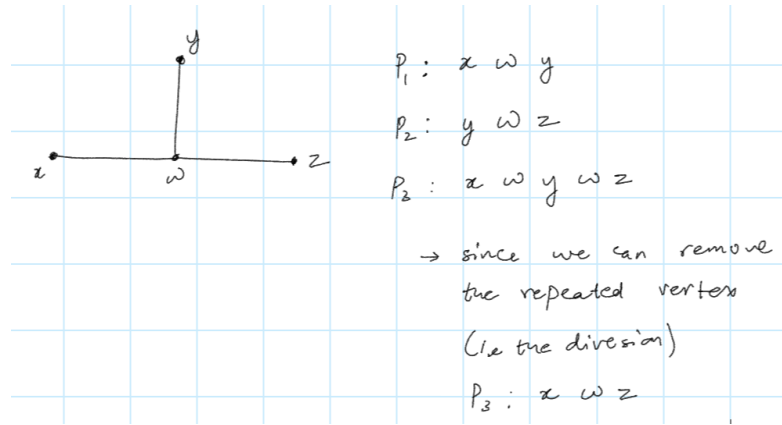 y
x
w
z
P₁ : x w y
P₂ : y w z
P₃ : x w y w z
→ since we can remove
the repeated vertex
(i.e the divesion)
P₃ : x w z